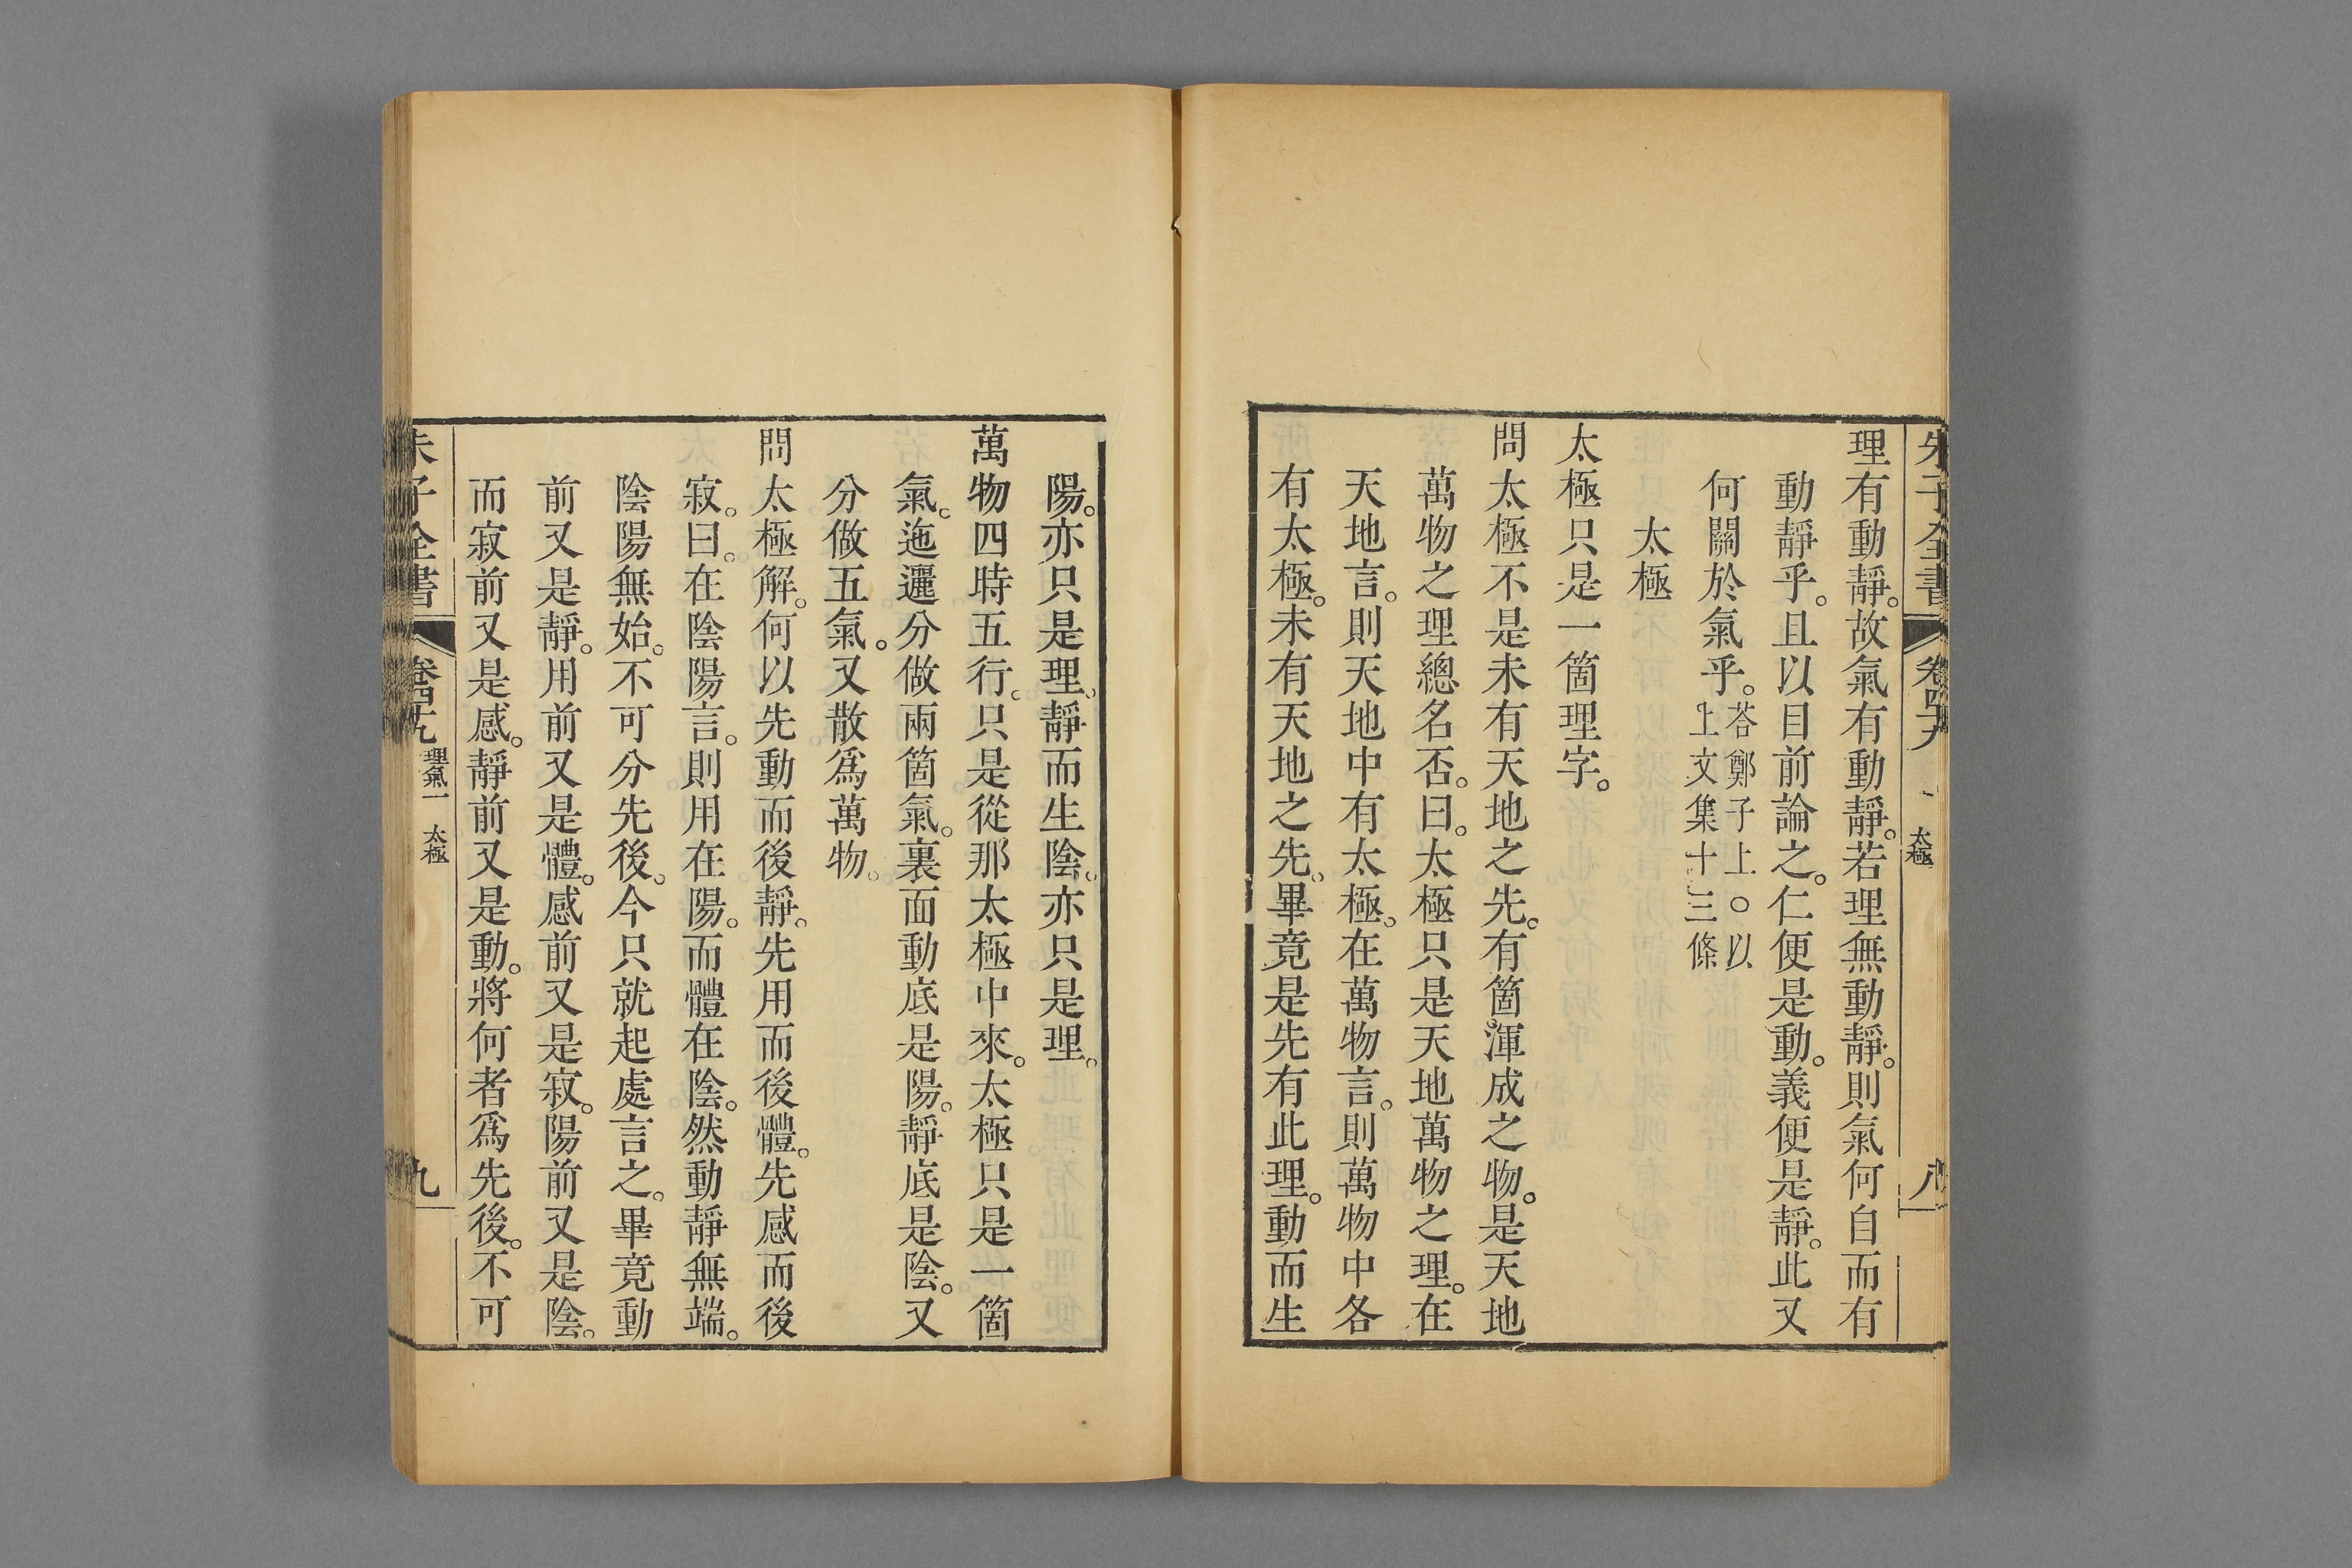 朱子全書 卷四十九 太極 八
理有動靜。故氣有動靜。若理無動靜。則氣何自而有
動靜乎。且以目前論之。仁便是動。義便是靜。此又
何關於氣乎。荅鄭子上。○以
上文集十三條
太極
太極只是一箇理字。
問太極不是未有天地之先。有箇渾成之物。是天地
萬物之理總名否。曰。太極只是天地萬物之理。在
天地言。則天地中有太極。在萬物言。則萬物中各
有太極。未有天地之先。畢竟是先有此理。動而生
陽。亦只是理。靜而生陰。亦只是理。
萬物四時五行。只是從那太極中來。太極只是一箇
氣。迤邐分做兩箇氣。裏面動底是陽。靜底是陰。又
分做五氣。又散爲萬物。
問太極解。何以先動而後靜。先用而後體。先感而後
寂。曰。在陰陽言。則用在陽。而體在陰。然動靜無端。
陰陽無始。不可分先後。今只就起處言之。畢竟動
前又是靜。用前又是體。感前又是寂。陽前又是陰。
而寂前又是感。靜前又是動。將何者爲先後。不可
朱子全書 卷四十九 理氣一 太極 九